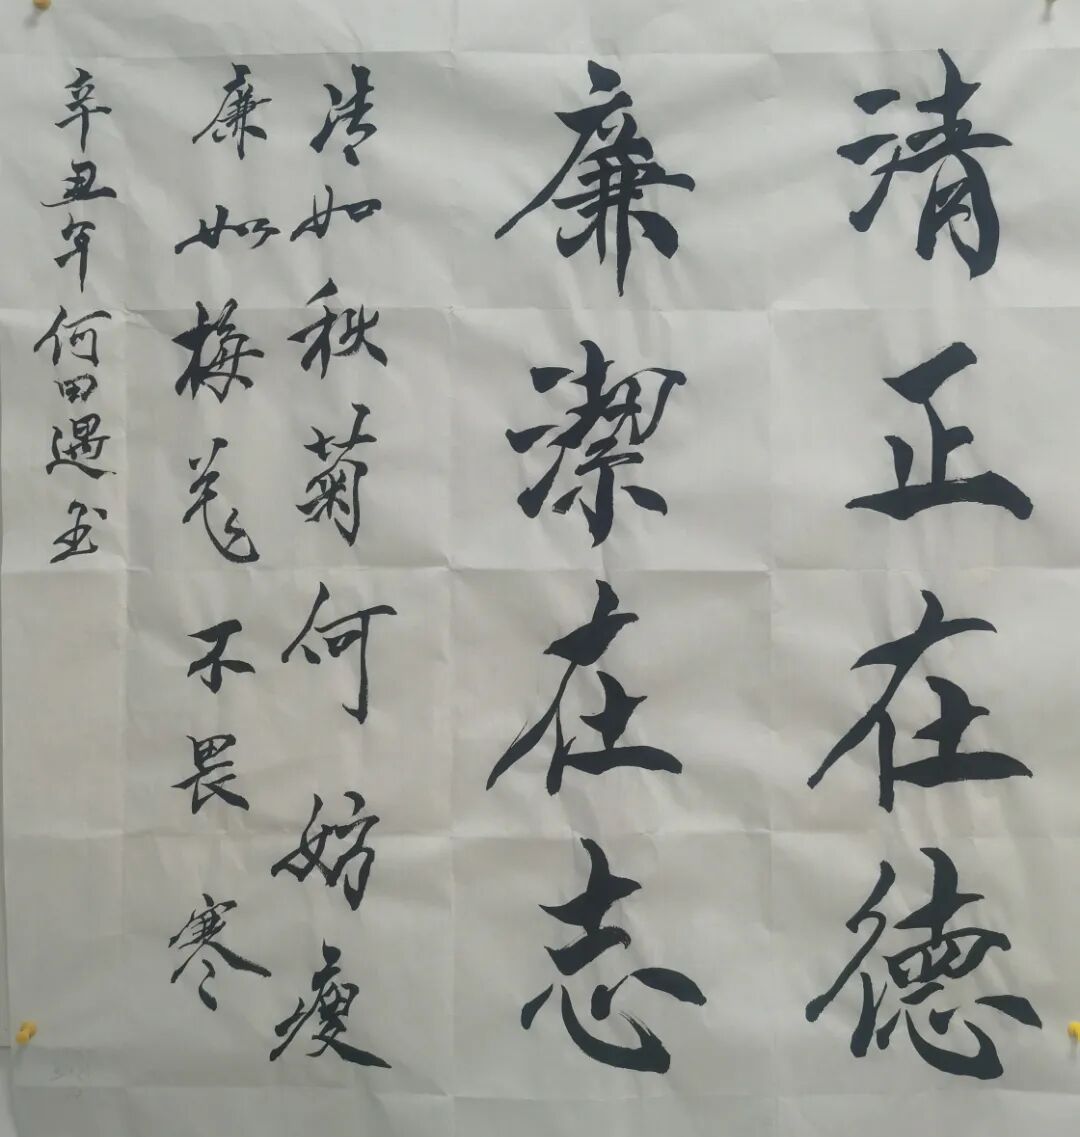 清正在德
廉潔在志
清如秋菊何妨瘦
廉如梅花不畏寒
辛丑年何田遇书